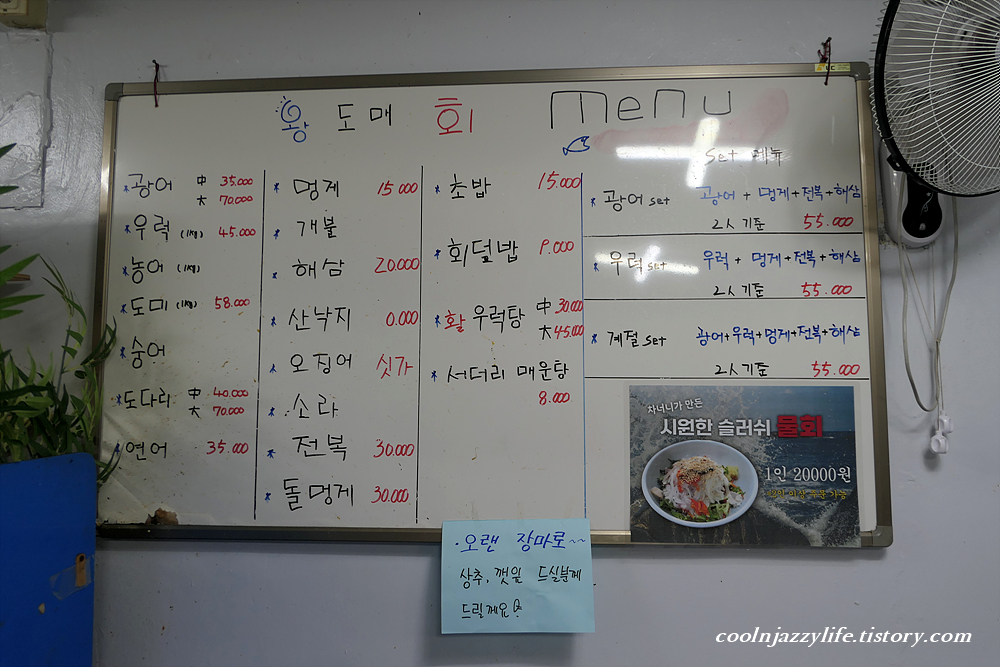 왕 도매 회 menu
* 광어 中 35.000
大 70.000
* 우럭 (1kg) 45.000
* 농어 (1kg)
* 도미 (1kg) 58.000
* 숭어
* 도다리 中 40.000
大 70.000
* 연어 35.000
* 멍게 15.000
* 개불
* 해삼 20.000
* 산낙지 0.000
* 오징어 싯가
* 소라
* 전복 30.000
* 돌멍게 30.000
* 초밥 15.000
* 회덮밥 9.000
* 활 우럭탕 中 30.000
大 45.000
* 서더리 매운탕
8.000
set 메뉴
* 광어 set 광어 + 멍게+전복+해삼
2人 기준 55.000
* 우럭 set 우럭 + 멍게+전복+해삼
2人 기준 55.000
* 계절 set 광어+우럭+멍게+전복+해삼
2人 기준 55.000
자녀니가 만든
시원한 슬러쉬 물회
1인 20000원
이상 주문 가능
·오랜 장마로~~
상추, 깻잎 드실분께
드릴께요
coolnjazzylife.tistory.com